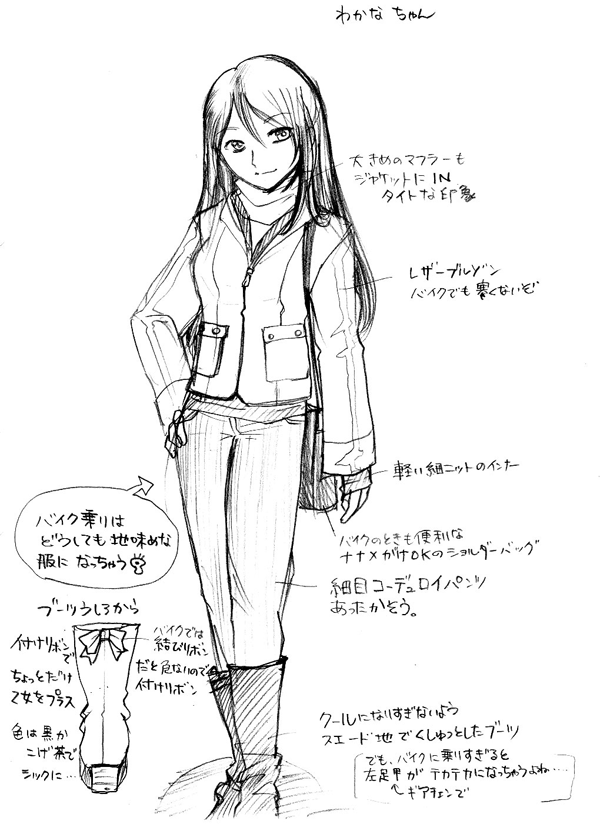 わかなちゃん
大きめのマフラーも
ジャケットにIN
タイトな印象
レザーブルゾン
バイクでも寒くないぞ
軽い細ニットのインナー
バイクのときも便利な
ナナメがけOKのショルダーバッグ
細目コーデュロイパンツ
あったかそう。
バイク乗りは
どうしても地味めな
服になっちゃう
ブーツうしろから
付けリボンで
ちょっとだけ
乙女をプラス
色は黒か
こげ茶で
シックに…
バイクでは
結びリボン
だと危ないので
付けリボン
クールになりすぎないよう
スエード地でくしゅっとしたブーツ
でも、バイクに乗りすぎると
左足甲がテカテカになっちゃうよね……
↑ギアチェンで